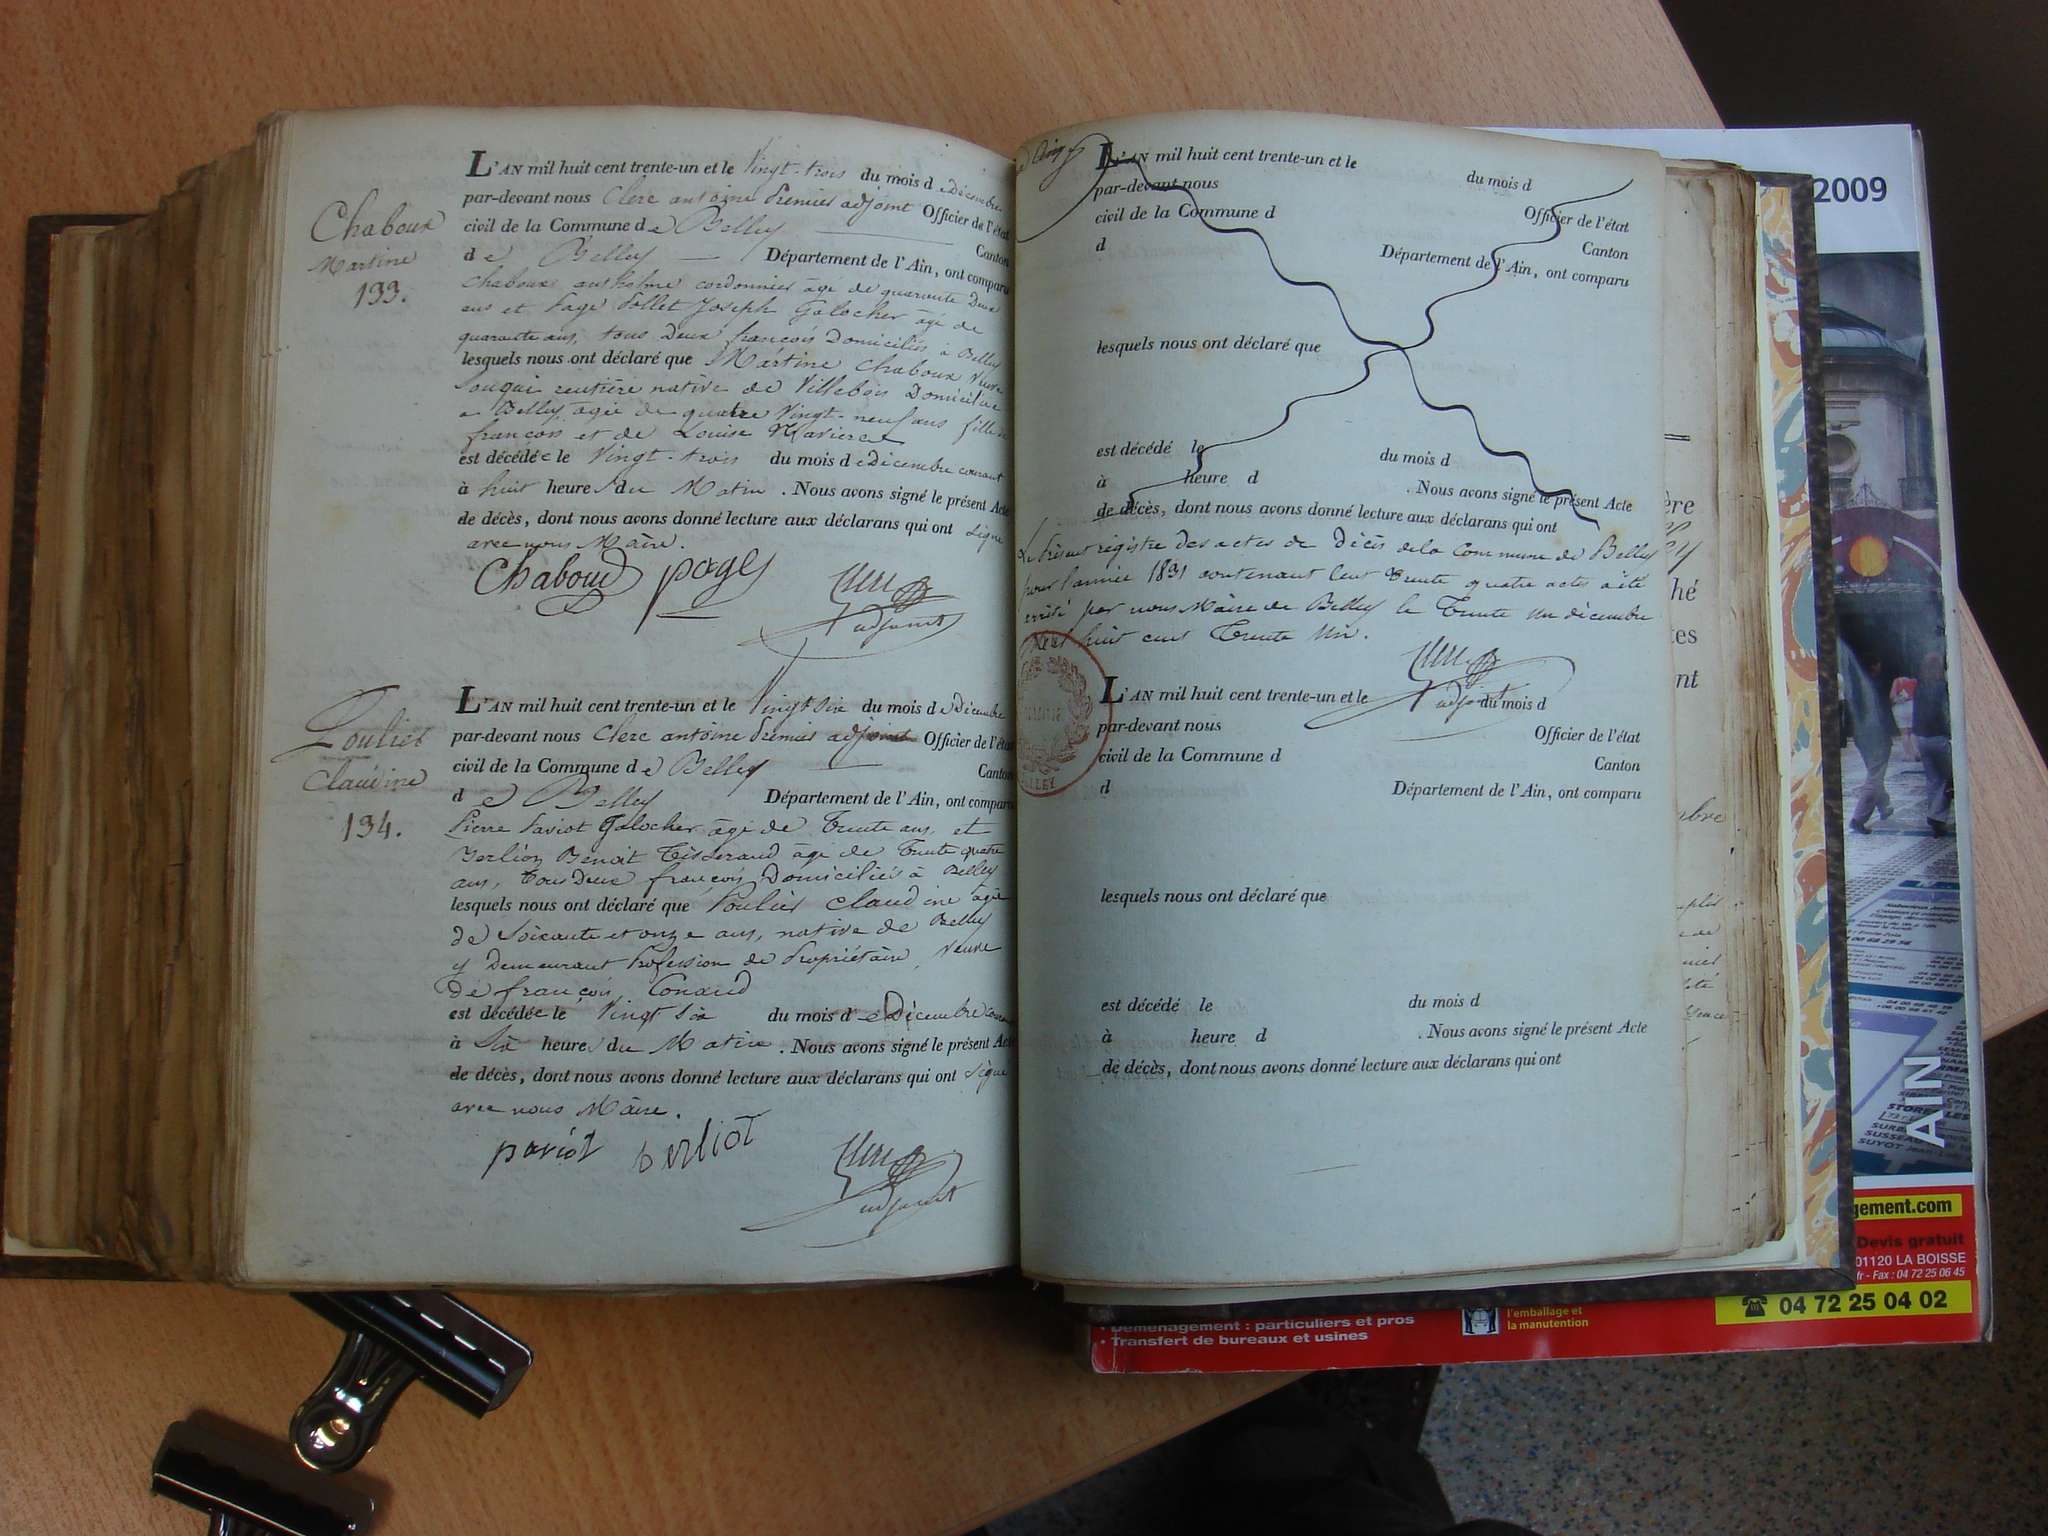 Chaboux
Martine
133.
L'AN mil huit cent trente-un et le Vingt-trois du mois de Décembre
par-devant nous Clerc antoine Premier adjoint Officier de l'état
civil de la Commune de Belley Canton
de Belley Département de l'Ain, ont comparu
Chaboux anthelme cordonnier âgé de quarante Deux
ans et Page Pollet Joseph Galocher âgé de
quarante ans, tous Deux françois Domiciliés à Belley
lesquels nous ont déclaré que Martine Chaboux Veuve
rentière native de Villebois Domiciliée
a Belley agée de quatre Vingt-neuf ans fille de
françois et de Louise
est décédée le Vingt-trois du mois de Décembre courant
à huit heures du Matin . Nous avons signé le présent Acte
de décès, dont nous avons donné lecture aux déclarans qui ont signé
avec nous Maire.
Chaboud pages Clerc
adjoint
Poulier
Claudine
134.
L'AN mil huit cent trente-un et le Vingt six du mois de Décembre
par-devant nous Clerc antoine Premier adjoint Officier de l'état
civil de la Commune de Belley Canton
de Belley Département de l'Ain, ont comparu
Pierre Pariot Galocher âgé de Trente ans, et
Berliot Benoit Tisserand âgé de Trente quatre
ans, Tous Deux françois Domiciliés à Belley
lesquels nous ont déclaré que Poulier Claudine agée
de Soixante et onze ans, native de Belley
y Demeurant Profession de Propriétaire, Veuve
de françois Conand
est décédée le Vingt Six du mois de Décembre courant
à Six heures du Matin . Nous avons signé le présent Acte
de décès, dont nous avons donné lecture aux déclarans qui ont signé
avec nous Maire.
pariot berliot Clerc
adjoint
L'AN mil huit cent trente-un et le du mois d
par-devant nous Officier de l'état
civil de la Commune d Canton
d Département de l'Ain, ont comparu
lesquels nous ont déclaré que
est décédé le du mois d
à heure d . Nous avons signé le présent Acte
de décès, dont nous avons donné lecture aux déclarans qui ont
Le Présent régistre des actes de Décès de la Commune de Belley
pour l'année 1831 contenant Cent Trente quatre actes a été
arrêté par nous Maire de Belley le Trente un décembre
Mil huit cent Trente Un.
Clerc
adjoint
L'AN mil huit cent trente-un et le du mois d
par-devant nous Officier de l'état
civil de la Commune d Canton
d Département de l'Ain, ont comparu
lesquels nous ont déclaré que
est décédé le du mois d
à heure d . Nous avons signé le présent Acte
de décès, dont nous avons donné lecture aux déclarans qui ont
2009
AIN
gement.com
Devis gratuit
01120 LA BOISSE
fr - Fax : 04 72 25 06 45
04 72 25 04 02
l'emballage et
la manutention
• Déménagement : particuliers et pros
• Transfert de bureaux et usines